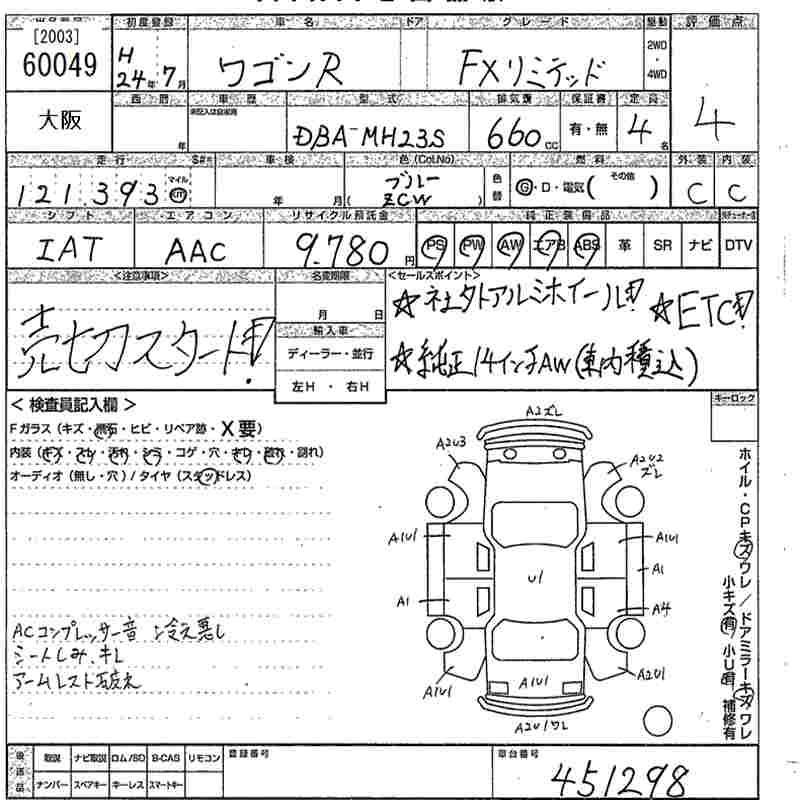 [2003]
60049
初度登録 車名 ドア グレード 駆動 評価点
H24年7月 ワゴンR FXリミテッド 2WD・4WD 4
大阪
西暦 車歴 型式 排気量 保証書 定員
年 DBA-MH23S 660cc 有・無 4名
走行 S#= 車検 色(Col.No) 燃料 外装 内装
121,393 マイル km 年 月 ブルー ZCW 色替 G・D・電気( その他 ) C C
シフト エアコン リサイクル預託金 純正装備品
IAT AAC 9,780円 PS PW AW エアB ABS 革 SR ナビ DTV
<注意事項> 名変期限 <セールスポイント>
売切スタート!! 月 日 ☆社外アルミホイール!! ☆ETC!!
輸入車
ディーラー・並行 ☆純正14インチAW(車内積込)
左H・右H
<検査員記入欄> キーロック
Fガラス(キズ・飛石・ヒビ・リペア跡・X要)
内装(キズ・スレ・汚れ・シミ・コゲ・穴・キレ・破れ・割れ)
オーディオ(無し・穴)/タイヤ(スタッドレス)
ACコンプレッサー音 冷え悪し
シートしみ、キレ
アームレスト破れ
A2ズレ
A2U3 A2U2 ズレ
A1U1 A1U1
U1 A1
A1 A4
A1U1 A1U1 A2U1
A2U1ワレ
ホイル・CPキズウレ/ドアミラーキズワレ
小キズ有 小U有 補修有
取説 ナビ取説 ロム/SD B-CAS リモコン 登録番号 車台番号
ナンバー スペアキー キーレス スマートキー 451298